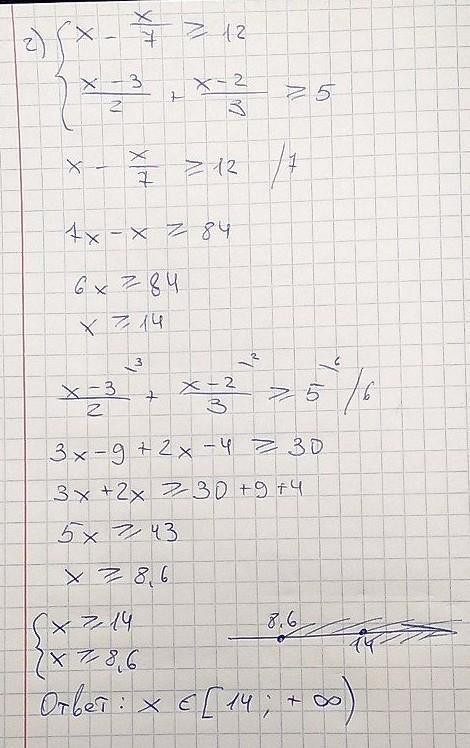 г) { x - x/7 ≥ 12
(x-3)/2 + (x-2)/3 ≥ 5
x - x/7 ≥ 12 /7
7x - x ≥ 84
6x ≥ 84
x ≥ 14
(x-3)/2 \3 + (x-2)/3 \2 ≥ 5 \6 /6
3x - 9 + 2x - 4 ≥ 30
3x + 2x ≥ 30 + 9 + 4
5x ≥ 43
x ≥ 8,6
{ x ≥ 14
x ≥ 8,6
8,6 14
Ответ: x ∈ [14; +∞)